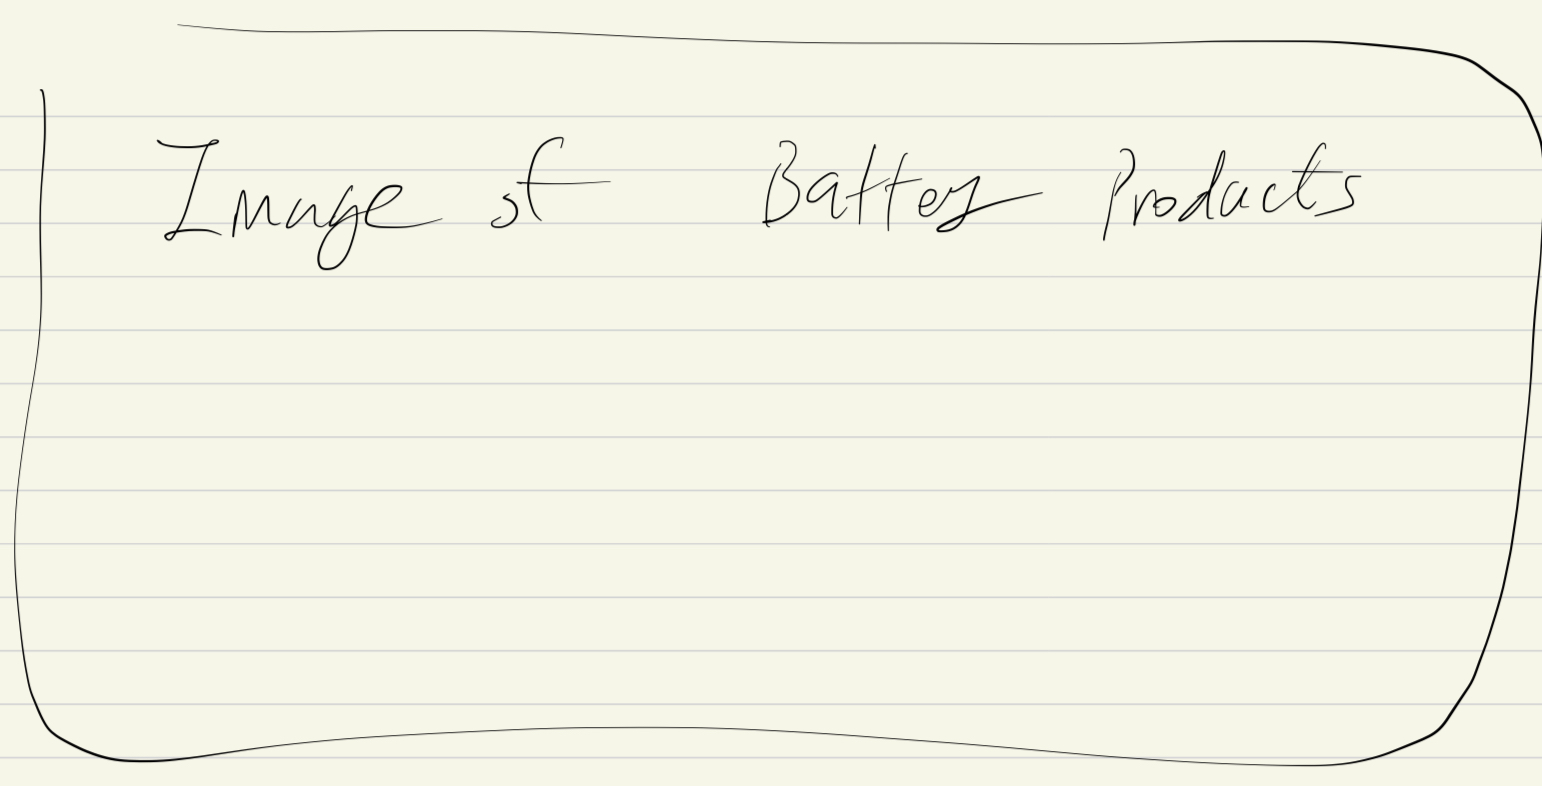 Image of Battery Products